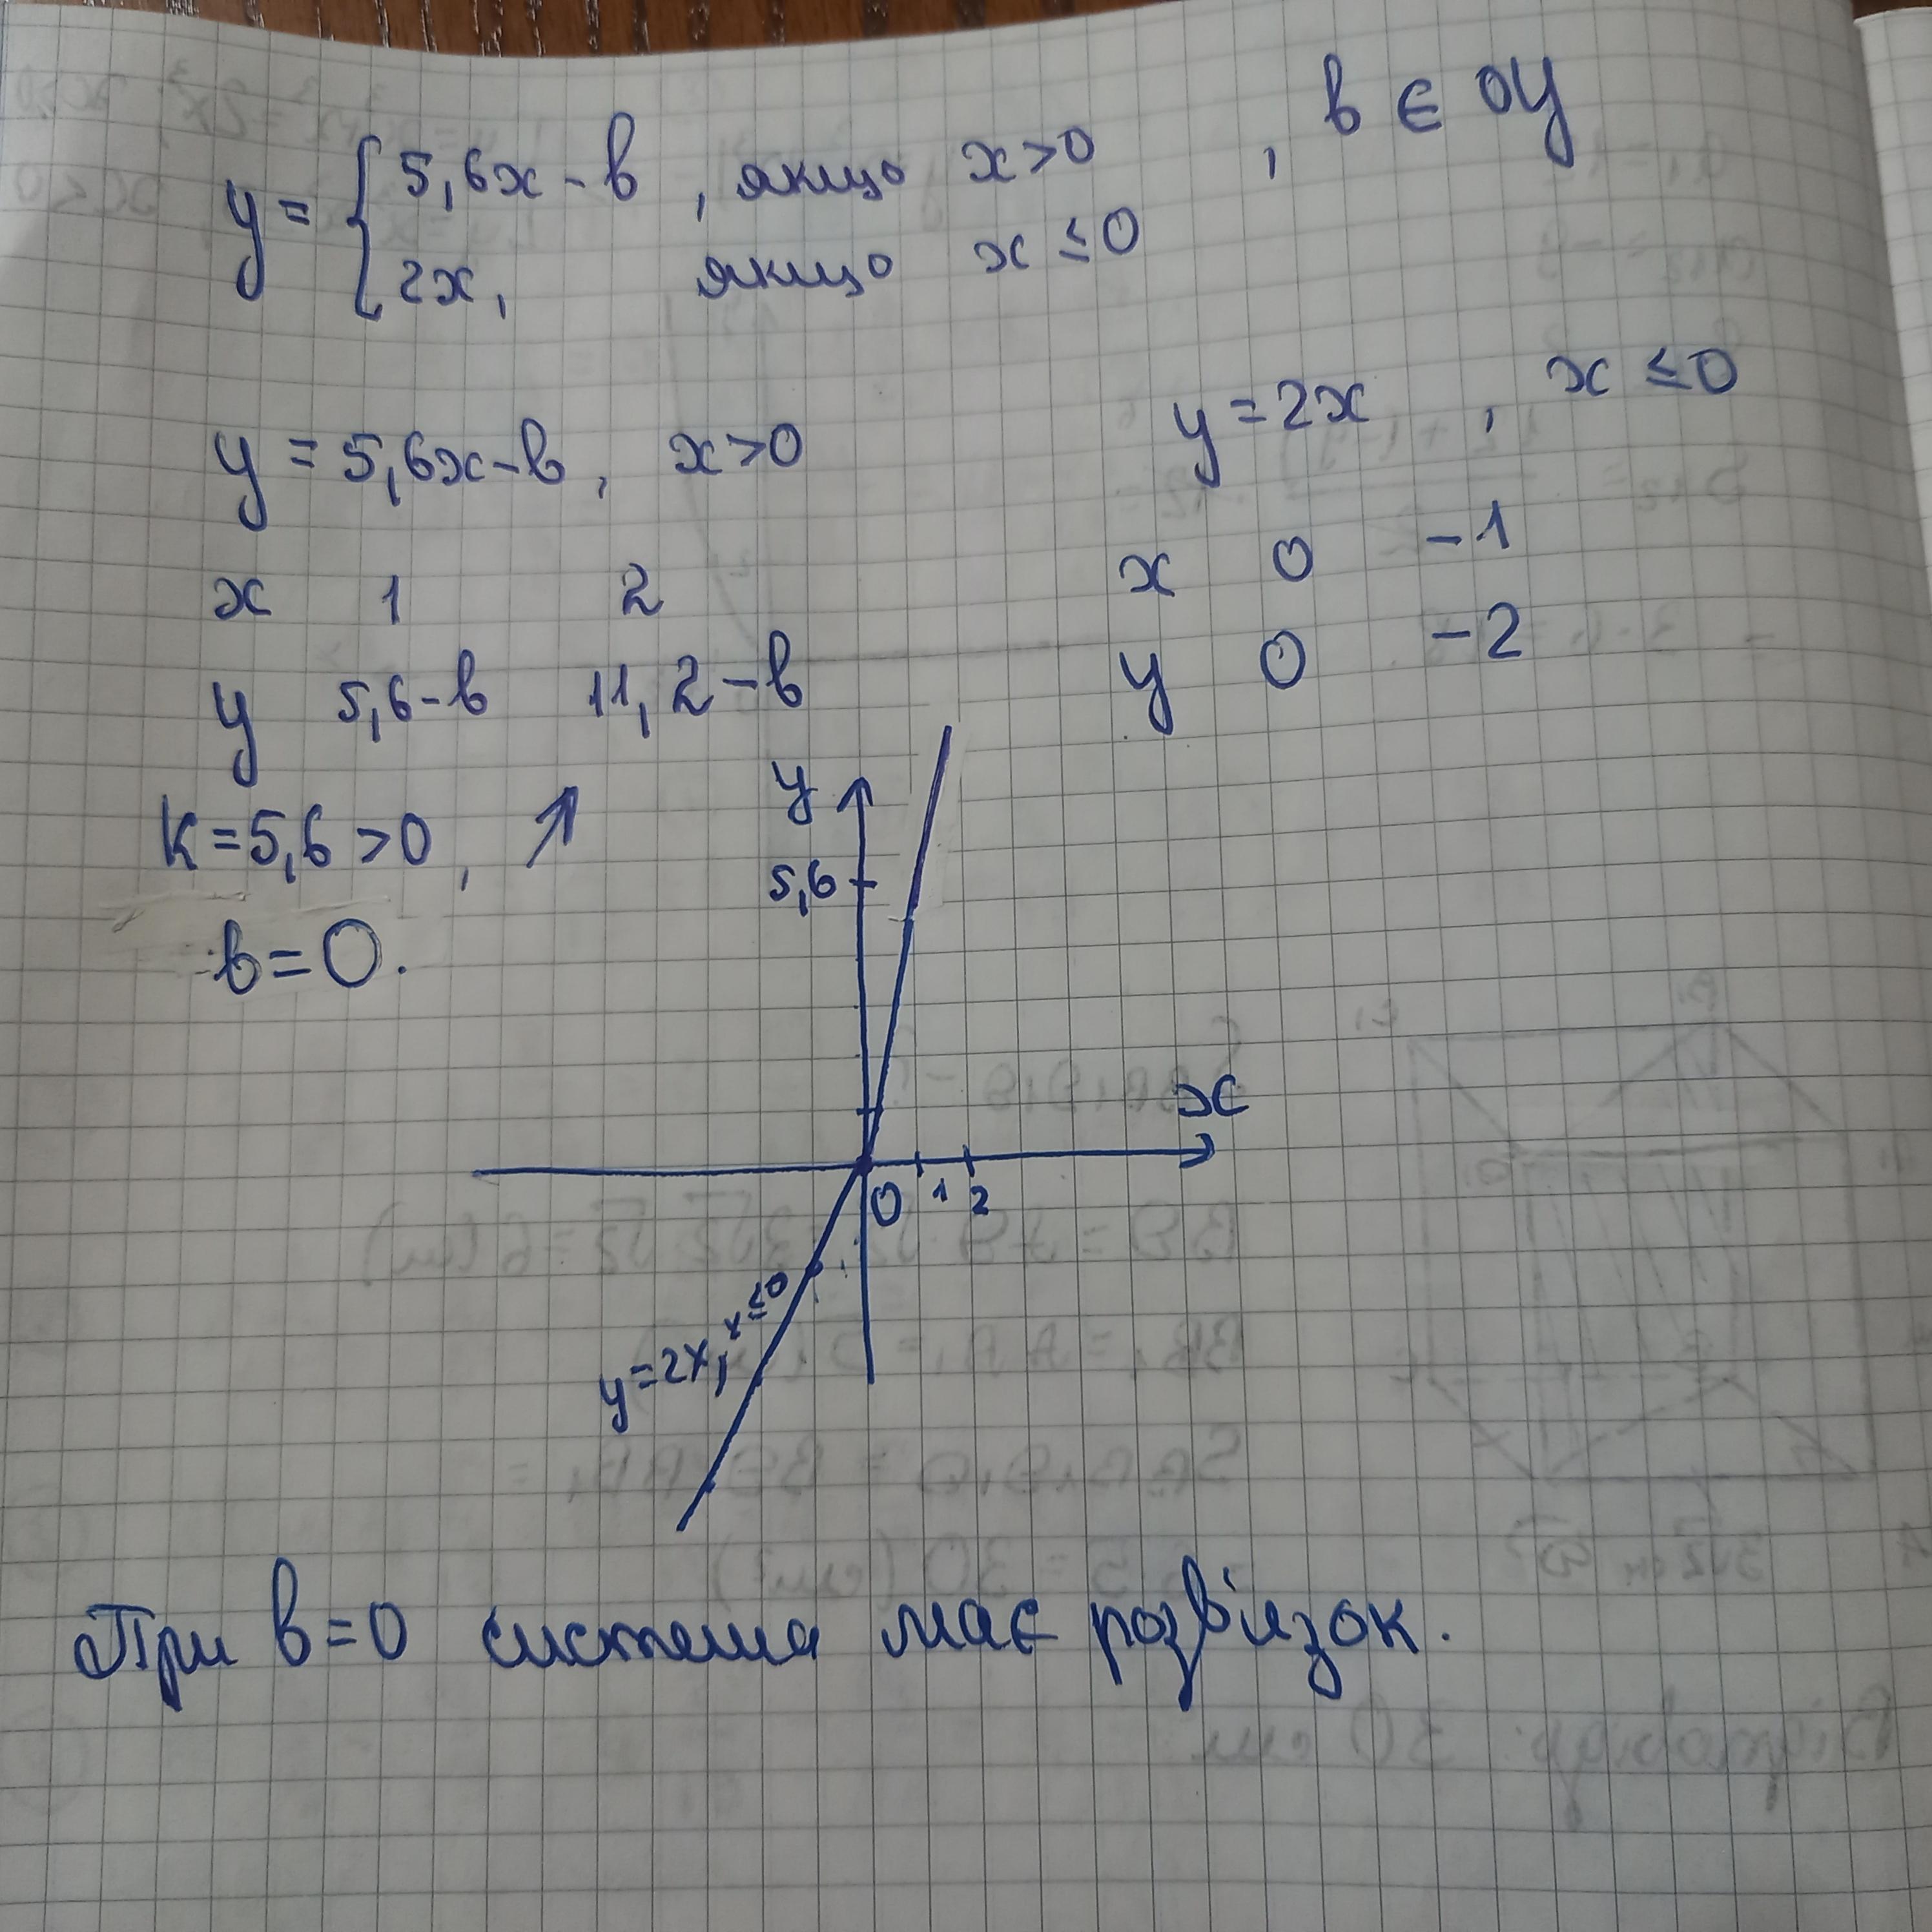 y = { 5,6x - b , якщо x > 0 , b ∈ OY
2x, якщо x ≤ 0
y = 5,6x - b , x > 0
x 1 2
y 5,6 - b 11,2 - b
y = 2x , x ≤ 0
x 0 -1
y 0 -2
K = 5,6 > 0 , ↗
b = 0.
y
5,6
x
0 1 2
y = 2x, x ≤ 0
При b = 0 система має розв'язок.